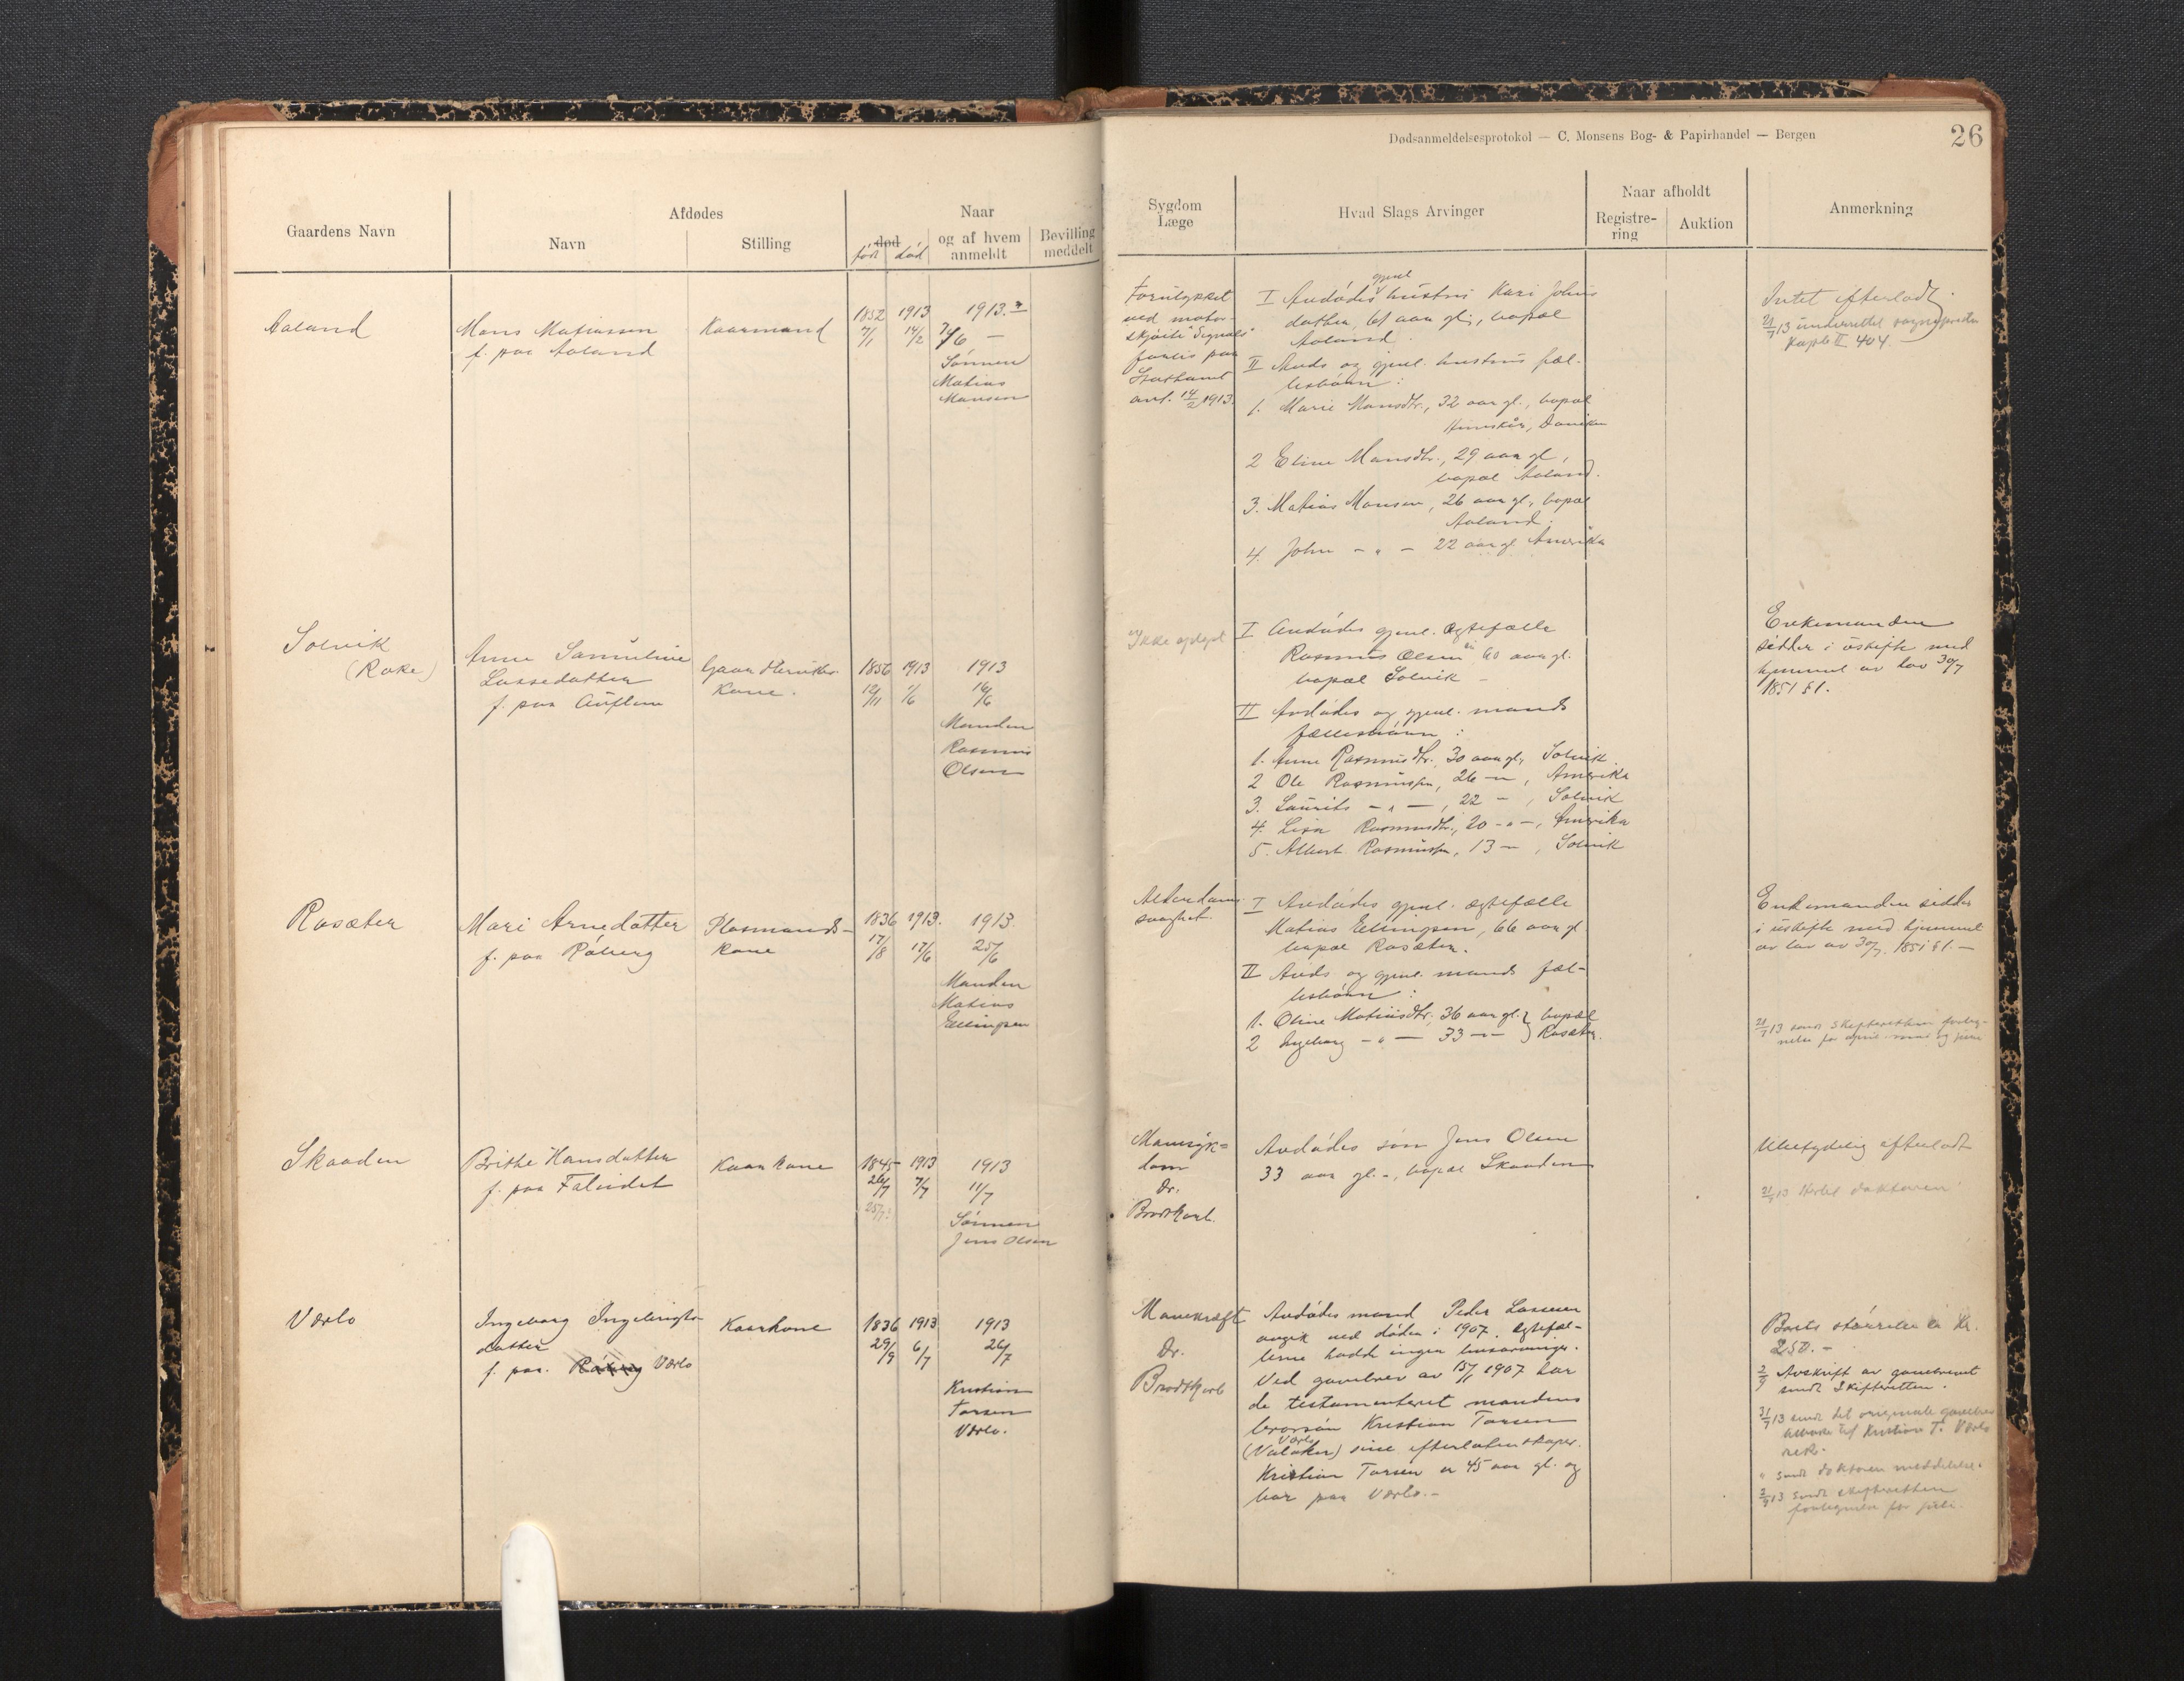 Dødsanmeldelsesprotokol — C. Monsens Bog- & Papirhandel — Bergen
26
Gaardens Navn
Afdødes
Navn
Stilling
Naar
død
født død
og af hvem
anmeldt
Bevilling
meddelt
Sygdom
Læge
Hvad Slags Arvinger
Naar afholdt
Registre-
ring
Auktion
Anmerkning
Aaland
Mons Matiassen
f. paa Aaland
Kaarmand
1852 1913
7/1 14/2
1913
7/6 —
Sønnen
Matias
Monsen
Forulykket
ved motor-
skjøite "Signals"
forlis paa
1913.
I Avdødes gjenl. hustru Kari Johns
datter, 61 aar gl., bopæl
Aaland.
II Avds og gjenl. hustrus fæl-
lesbørn:
1. Marie Monsdtr., 32 aar gl., bopæl
2 Eline Monsdtr., 29 aar gl.,
bopæl Aaland.
3. Matias Monsen, 26 aar gl., bopæl
Aaland.
4. John — " — 22 aar gl. Amerika
Intet efterladt.
21/7 13 underrettet
Kopib II 404.
Solvik
(Rake)
Anne Samuline
Lassedatter
f. paa
Gaardbruker-
kone.
1856 1913
12/11 /6
1913
16/6
Manden
Rasmus
Olsen
Ikke oplyst
I Avdødes gjenl. ægtefælle
Rasmus Olsen, 60 aar gl.
bopæl Solvik —
II Avdødes og gjenl. mands
fællesbørn:
1. Anne Rasmusdtr., 30 aar gl., Solvik
2 Ole Rasmussen, 26 — " , Amerika
3. Laurits — " — , 22 " , Solvik
4. Lisa Rasmusdtr., 20 — " —, Amerika
5. Albert Rasmussen, 13 — , Solvik
Enkemanden
sidder i uskifte med
hjemmel av lov 30/7
1851 § 1.
Rosæter
Mari Arnedatter
f. paa Råberg
Plasmands-
kone
1836 1913.
17/8 17/6
1913.
25/6
Manden
Matias
Ellingsen
Alderdoms
svaghet.
I Avdødes gjenl. ægtefælle
Matias Ellingsen, 66 aar gl.
bopæl Rosæter.
II Avds og gjenl. mands fæl-
lesbørn:
1. Oline Matiasdtr., 36 aar gl. } bopæl
2 Ingeborg — " — 33 — " — } Rosæter.
Enkemanden sidder
i uskifte med hjemmel
av lov av 30/7 1851 § 1. —
21/7 13 sendt Skifteretten forteg-
nelse for april, mai og juni
Skaaden
Brithe Hansdatter
f. paa Faleidet
Kaarkone
1845 1913
26/7 7/7
25/7?
1913
11/7
Sønnen
Jens Olsen
Mavesyk=
dom
Dr.
Brodtkorb.
Avdødes søn Jens Olsen
33 aar gl. —, bopæl Skaaden
Ubetydelig efterladt
21/7 13 doktoren
Værlo
Ingeborg Ingebrigts-
datter
f. paa. Råberg Værlo
Kaarkone
1836 1913
29/9 6/7
1913
26/7
Kristian
Torsen
Værlo.
Mavekræft
Dr.
Brodtkorb
Avdødes mand Peder Lassesen
avgik ved døden i 1907. Ægtefæl-
lerne hadde ingen livsarvinger.
Ved gavebrev av 15/1 1907 har
de testamenteret mandens
brorsøn Kristian Torsen
Værlo
sine efterladenskaper.
Kristian Torsen er 45 aar gl. og
bor paa Værlo. —
Boets størrelse er kr.
250. —
2/9 Avskrift av gavebrevet
sendt Skifteretten.
31/7 13 sendt det originale gavebrev
tilbake til Kristian T. Værlo
rek.
" sendt doktoren meddelelse.
2/9 13 sendt skifteretten
fortegnelse for juli.